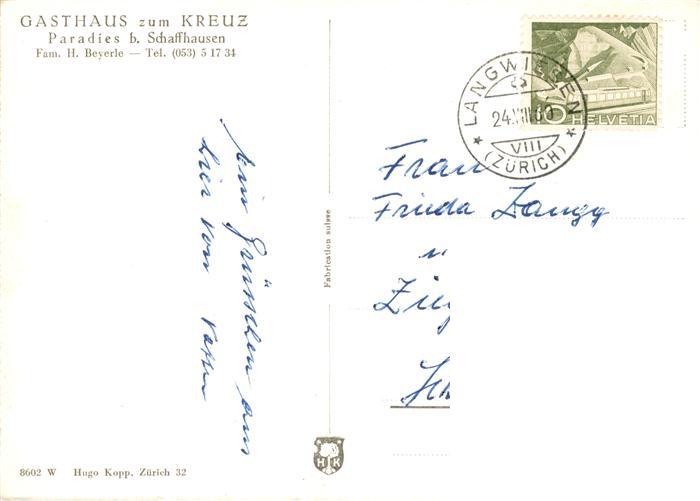 GASTHAUS zum KREUZ
Paradies b. Schaffhausen
Fam. H. Beyerle — Tel. (053) 5 17 34
LANGWIESEN
24.VIII.60
VIII
(ZÜRICH)
10 HELVETIA
Frau
Frieda Zangg
Ein Grüsschen aus
hier von
Fabrication suisse
HK
8602 W Hugo Kopp, Zürich 32